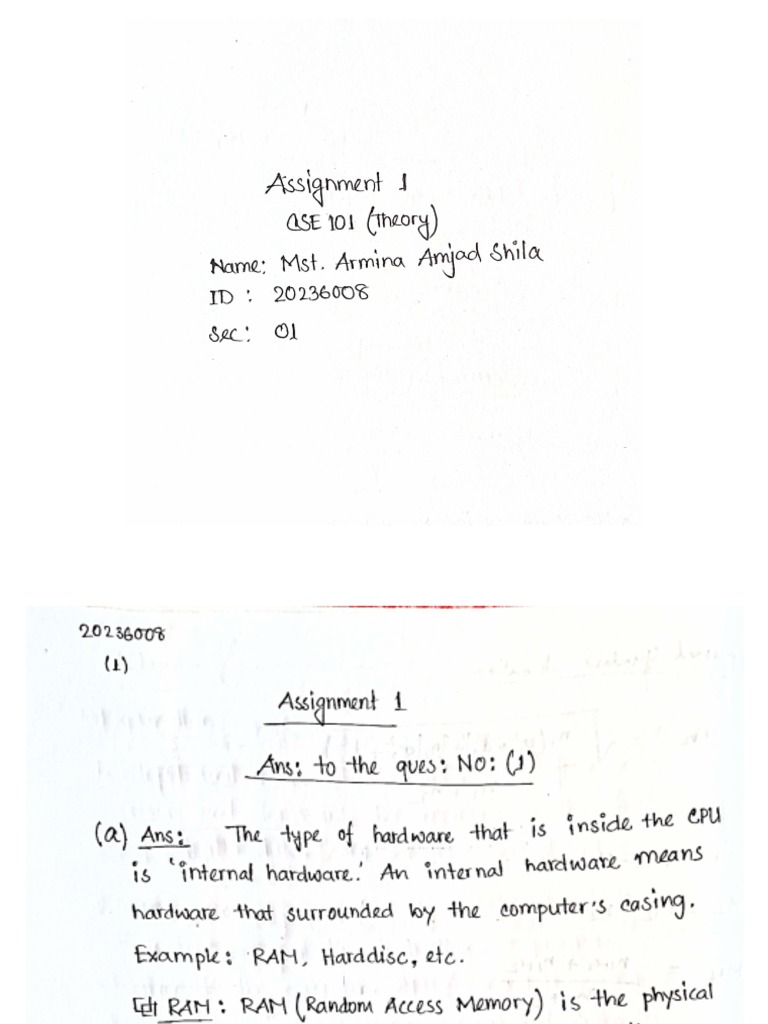 Assignment 1
CSE 101 (Theory)
Name: Mst. Armina Amjad Shila
ID : 20236008
Sec: 01
20236008
(1)
Assignment 1
Ans: to the ques: No: (1)
(a) Ans: The type of hardware that is inside the CPU
is 'internal hardware.' An internal hardware means
hardware that surrounded by the computer's casing.
Example: RAM, Harddisc, etc.
RAM : RAM (Random Access Memory) is the physical